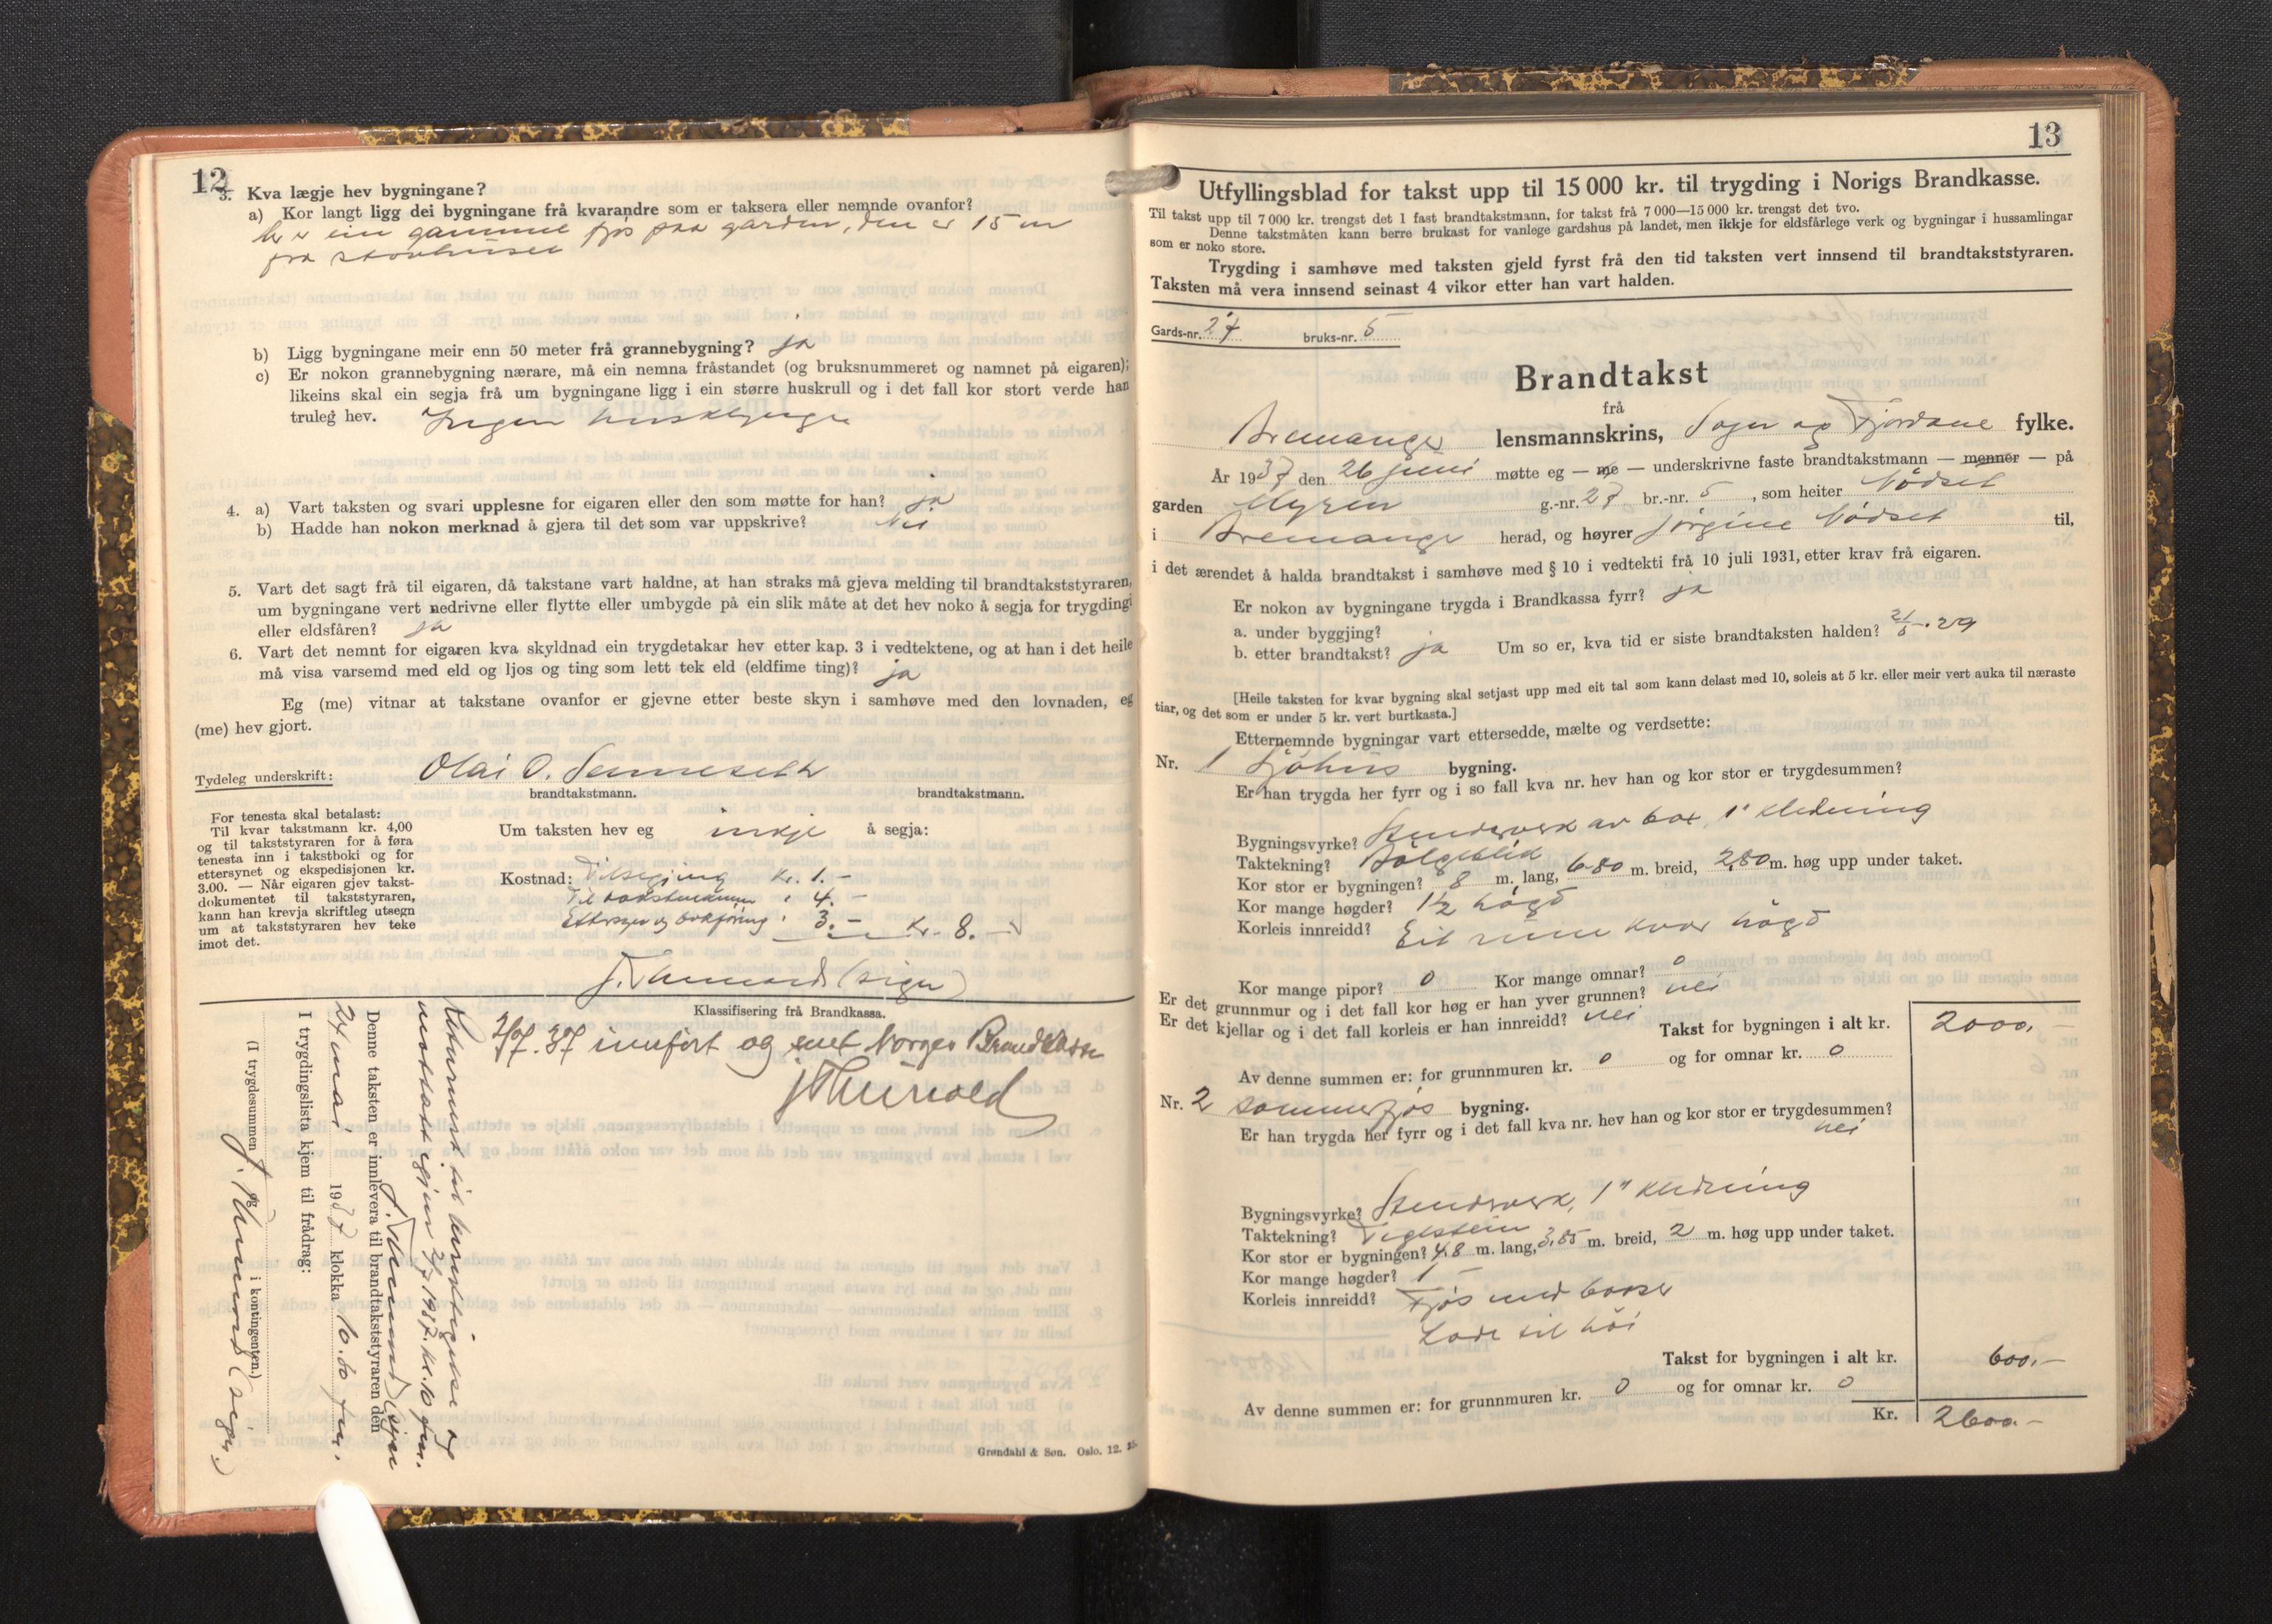 12
3. Kva lægje hev bygningane?
a) Kor langt ligg dei bygningane frå kvarandre som er taksera eller nemnde ovanfor?
er ein gammel fjøs paa garden, den er 15 m
fra stovehuset
b) Ligg bygningane meir enn 50 meter frå grannebygning? ja
c) Er nokon grannebygning nærare, må ein nemna fråstandet (og bruksnummeret og namnet på eigaren);
likeins skal ein segja frå um bygningane ligg i ein større huskrull og i det fall kor stort verde han
truleg hev. Ingen
4. a) Vart taksten og svari upplesne for eigaren eller den som møtte for han? ja
b) Hadde han nokon merknad å gjera til det som var uppskrive? Nei
5. Vart det sagt frå til eigaren, då takstane vart haldne, at han straks må gjeva melding til brandtakststyraren,
um bygningane vert nedrivne eller flytte eller umbygde på ein slik måte at det hev noko å segja for trygdingi
eller eldsfåren? ja
6. Vart det nemnt for eigaren kva skyldnad ein trygdetakar hev etter kap. 3 i vedtektene, og at han i det heile
må visa varsemd med eld og ljos og ting som lett tek eld (eldfime ting)? ja
Eg (me) vitnar at takstane ovanfor er gjevne etter beste skyn i samhøve med den lovnaden, eg
(me) hev gjort.
Tydeleg underskrift: Olai O.
brandtakstmann. brandtakstmann.
For tenesta skal betalast:
Til kvar takstmann kr. 4,00
og til takststyraren for å føra
tenesta inn i takstboki og for
ettersynet og ekspedisjonen kr.
3.00. — Når eigaren gjev takst-
dokumentet til takststyraren,
kann han krevja skriftleg utsegn
um at takststyraren hev teke
imot det.
Um taksten hev eg inkje å segja:
Kostnad: Tilsegjing kr. 1.-
Til takstmannen " 4.-
Ettersyn og bokføring " 3.- Kr. 8.-
(sign)
Klassifisering frå Brandkassa.
2/7.37 innført og sent Norges Brandkasse
Returnert til og
mottatt igjen 2/7 1937. kl. 10 fm.
(sign
Denne taksten er innlevera til brandtakststyraren den
24 mai 1937 klokka 10.60 fm.
I trygdingslista kjem til frådrag:
(I trygdesummen og i kontingenten.)
(sign.)
Grøndahl & Søn. Oslo. 12. 35.
13
Utfyllingsblad for takst upp til 15 000 kr. til trygding i Norigs Brandkasse.
Til takst upp til 7 000 kr. trengst det 1 fast brandtakstmann, for takst frå 7 000—15 000 kr. trengst det tvo.
Denne takstmåten kann berre brukast for vanlege gardshus på landet, men ikkje for eldsfårlege verk og bygningar i hussamlingar
som er noko store.
Trygding i samhøve med taksten gjeld fyrst frå den tid taksten vert innsend til brandtakststyraren.
Taksten må vera innsend seinast 4 vikor etter han vart halden.
Gards-nr. 27 bruks-nr. 5
Brandtakst
frå
Bremanger lensmannskrins, Sogn og Fjordane fylke.
År 1937 den 26 juni møtte eg — me — underskrivne faste brandtakstmann — menner — på
garden Myren g.-nr. 27 br.-nr. 5, som heiter Nødset
i Bremanger herad, og høyrer Jørgine Nødset til,
i det ærendet å halda brandtakst i samhøve med § 10 i vedtekti frå 10 juli 1931, etter krav frå eigaren.
Er nokon av bygningane trygda i Brandkassa fyrr? ja
a. under byggjing?
b. etter brandtakst? ja Um so er, kva tid er siste brandtaksten halden? 21/5-29
[Heile taksten for kvar bygning skal setjast upp med eit tal som kann delast med 10, soleis at 5 kr. eller meir vert auka til næraste
tiar, og det som er under 5 kr. vert burtkasta.]
Etternemnde bygningar vart ettersedde, mælte og verdsette:
Nr. 1 Sjøhus bygning.
Er han trygda her fyrr og i so fall kva nr. hev han og kor stor er trygdesummen?
Bygningsvyrke? Stenderverk av 6x4, 1" kledning
Taktekning? Bølgeblik
Kor stor er bygningen? 8 m. lang, 6.80 m. breid, 2,80 m. høg upp under taket.
Kor mange høgder? 1½ høgd
Korleis innreidd? Eit rum kvar høgd
Kor mange pipor? 0 Kor mange omnar? 0
Er det grunnmur og i det fall kor høg er han yver grunnen? nei
Er det kjellar og i det fall korleis er han innreidd? nei
Takst for bygningen i alt kr. 2000.-
Av denne summen er: for grunnmuren kr. 0 og for omnar kr. 0
Nr. 2 sommerfjøs bygning.
Er han trygda her fyrr og i det fall kva nr. hev han og kor stor er trygdesummen?
nei
Bygningsvyrke? Stenderverk, 1" kledning
Taktekning? Teglstein
Kor stor er bygningen? 4.8 m. lang, 3.85 m. breid, 2 m. høg upp under taket.
Kor mange høgder? 1
Korleis innreidd? Fjøs med baaser
Lade til høi
Takst for bygningen i alt kr. 600.-
Av denne summen er: for grunnmuren kr. 0 og for omnar kr. 0
Kr. 2600.-